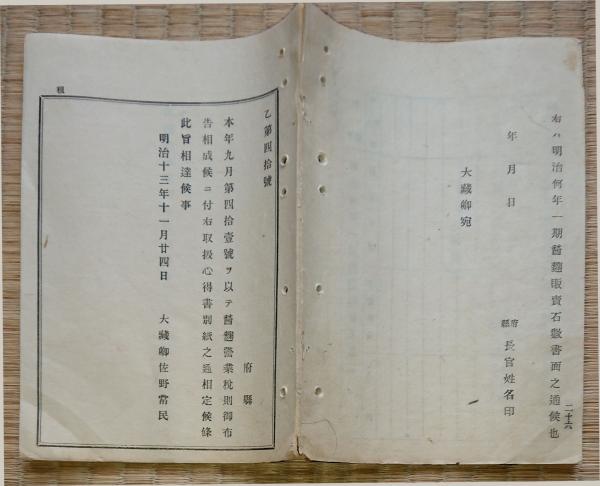 右ハ明治何年一期醬麴販賣石數書面之通候也
年月日
府縣長官姓名印
大藏卿宛
二十六
乙第四拾號
府縣
本年九月第四拾壹號ヲ以テ醬麴營業稅則御布
告相成候ニ付右取扱心得書別紙之通相定候條
此旨相達候事
明治十三年十一月廿四日
大藏卿佐野常民
租